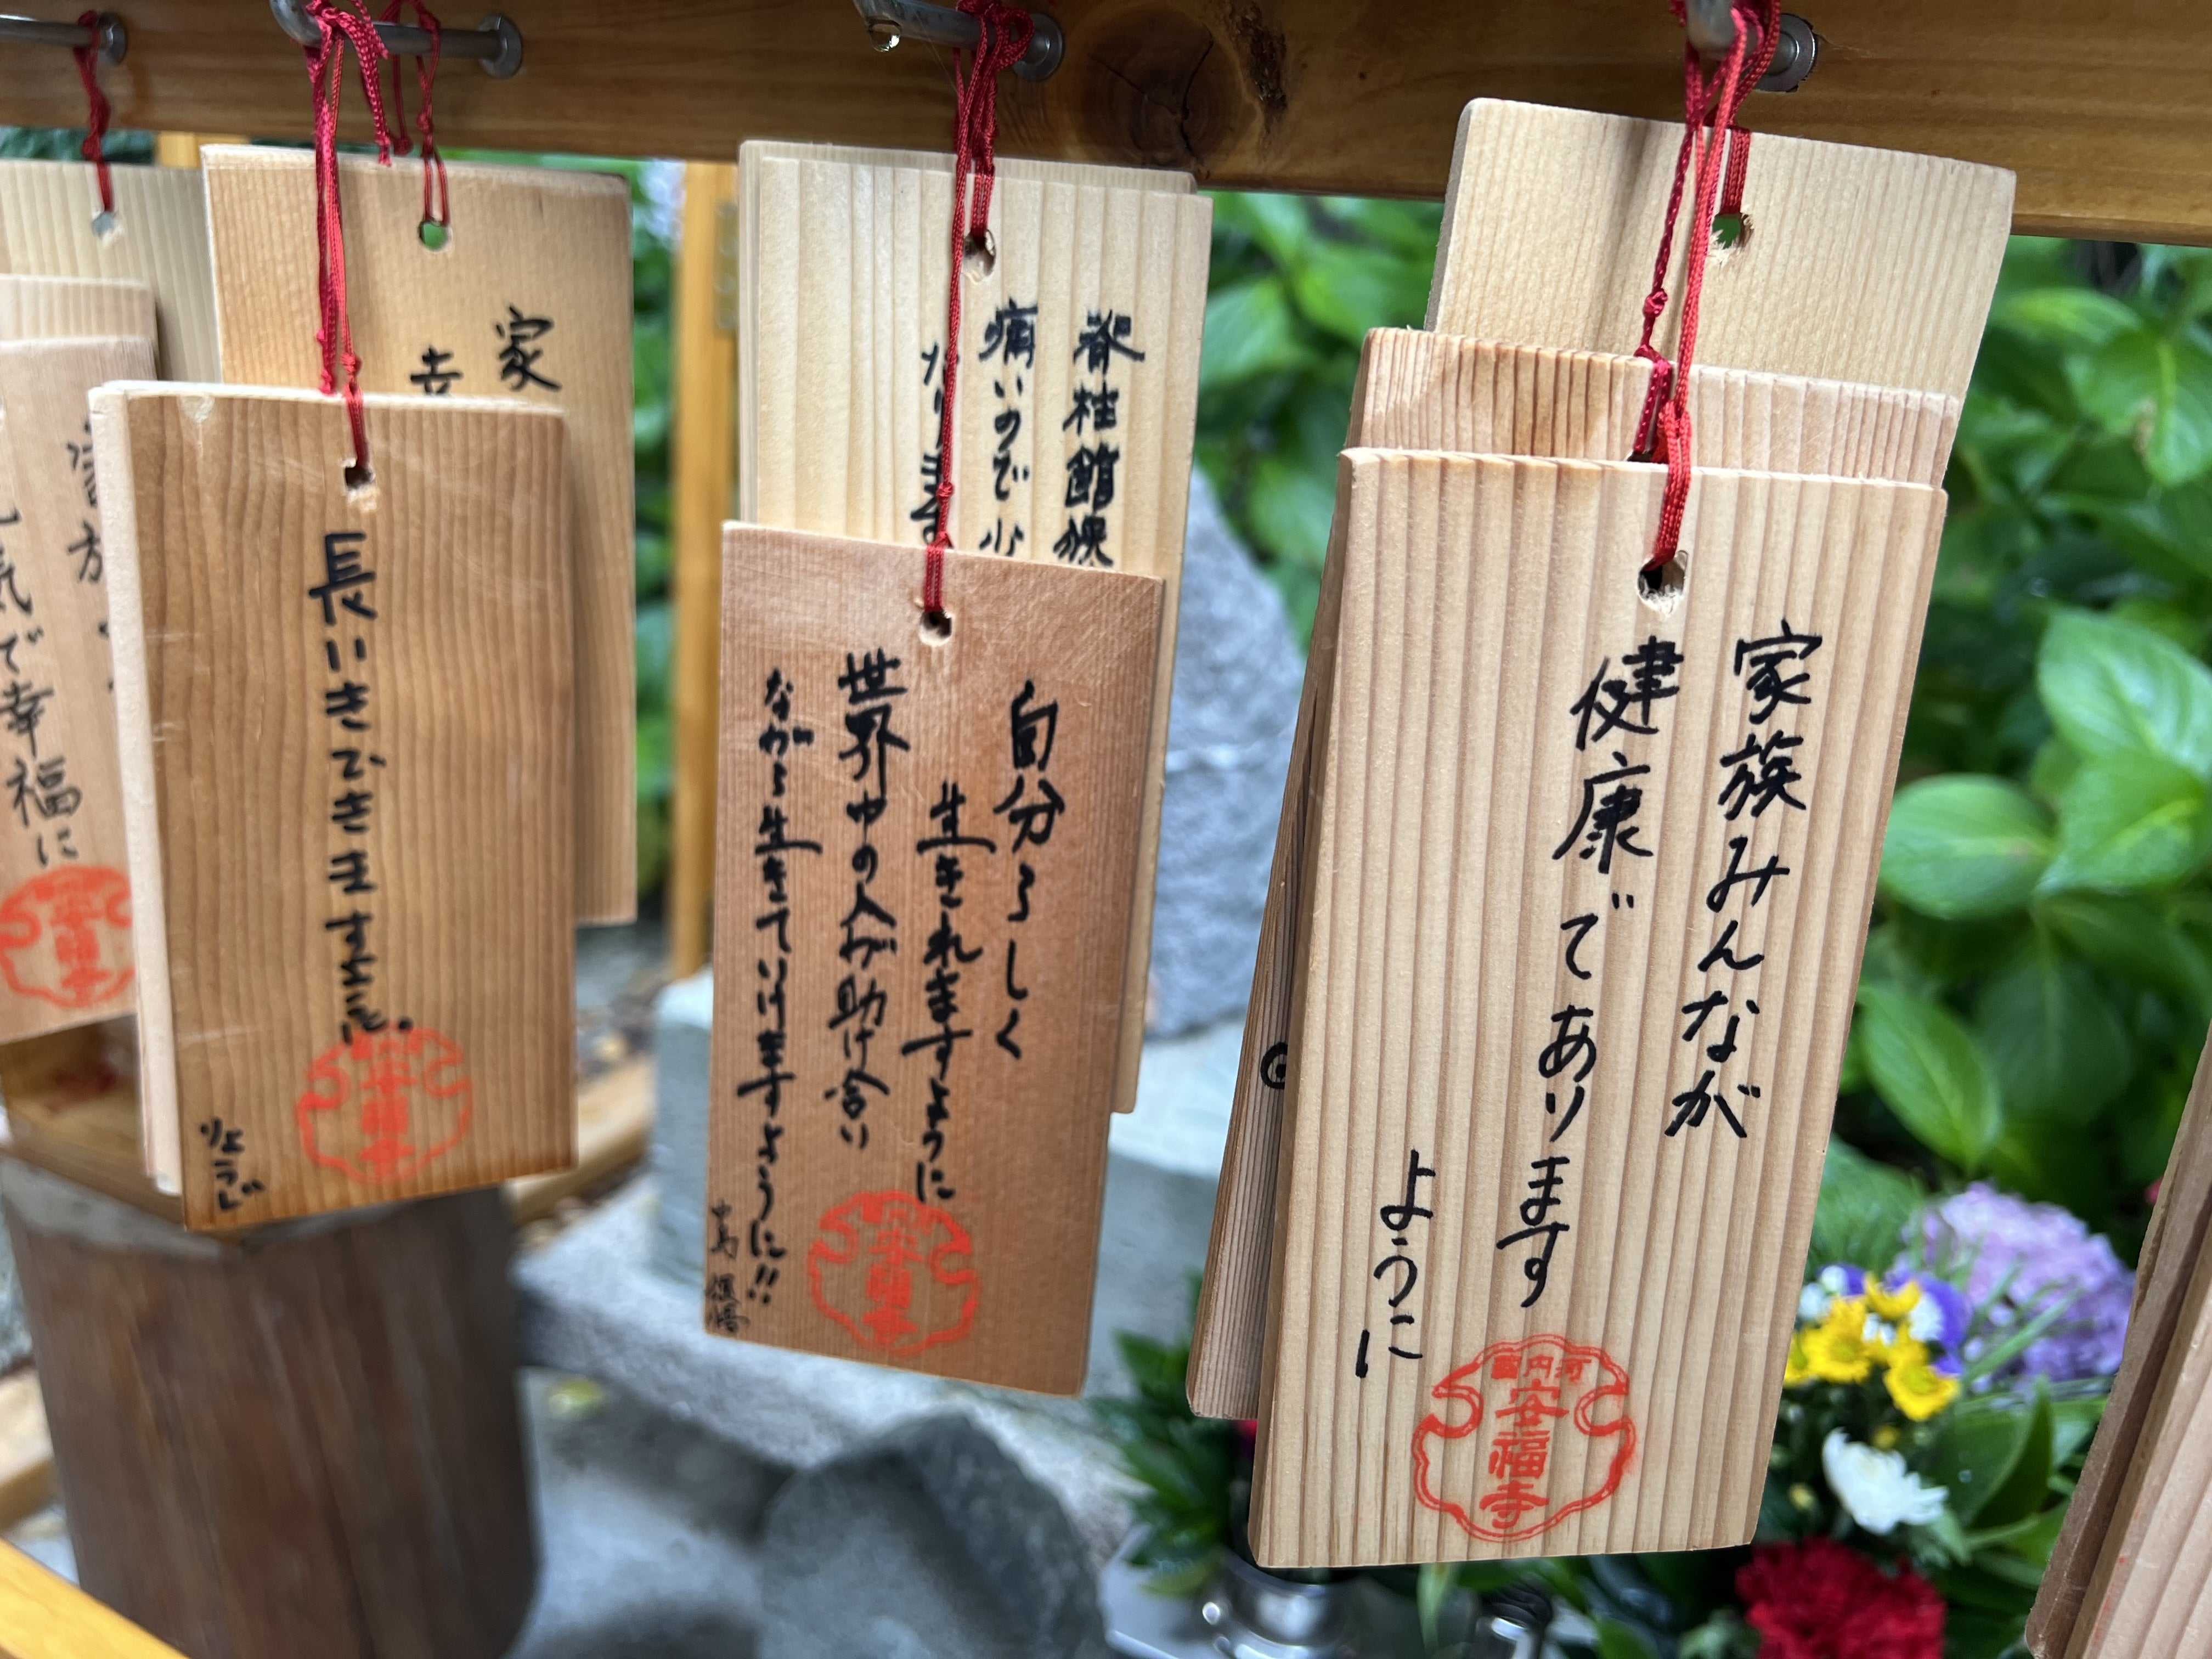 家族みんなが
健康であります
ように
圓内町
安福寺
痛いので小
なります
自分らしく
生きれますように
世界中の人が助け合い
ながら生きていけますように!!
家
幸
長いきできますように。
りょうじ
安福寺
家族
気で幸福に
安福寺